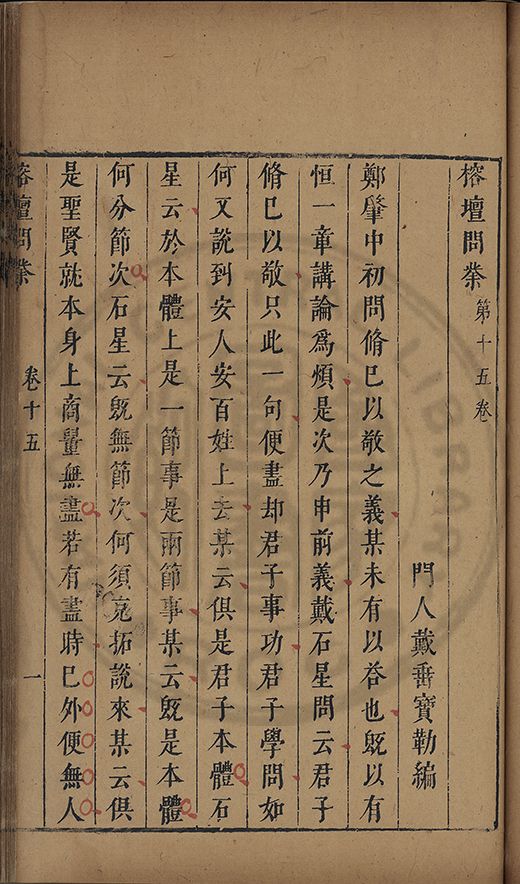 榕壇問業 第十五卷
門人戴垂寶勒編
鄭肇中初問脩已以敬之義某未有以荅也旣以有
恒一章講論爲煩是次乃申前義戴石星問云君子
脩已以敬只此一句便盡却君子事功君子學問如
何又說到安人安百姓上去某云俱是君子本體石
星云於本體上是一節事是兩節事某云旣是本體
何分節次石星云旣無節次何須克拓說來某云俱
是聖賢就本身上商量無盡若有盡時已外便無人
榕壇問業 卷十五 一